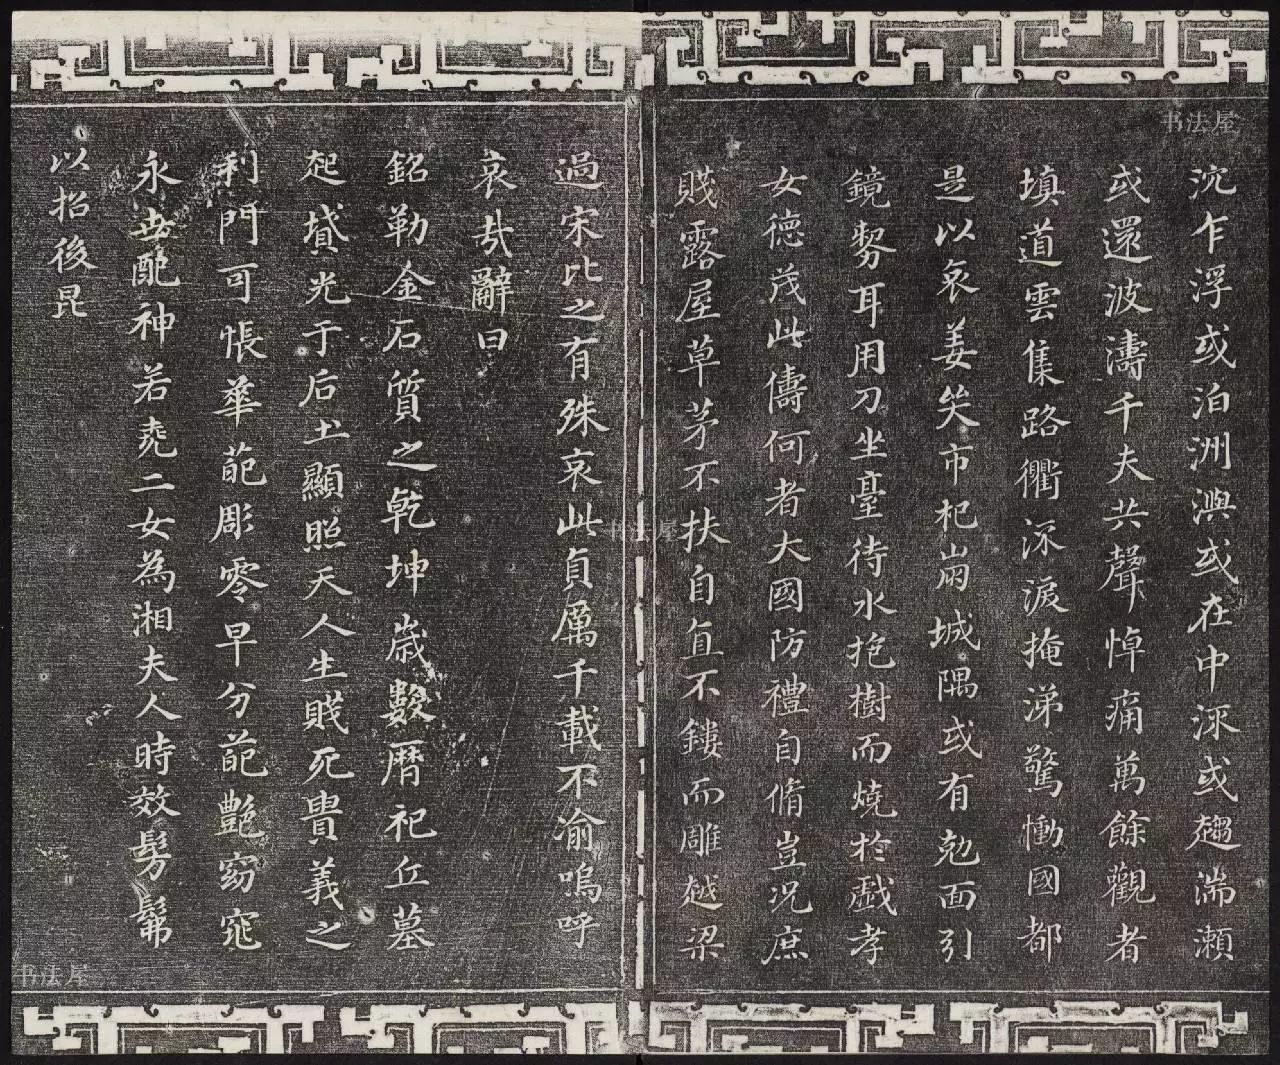 书法屋
沉乍浮或泊洲渚或在中流或趨湍瀨
或還波濤千夫共聲悼痛萬餘觀者
填道雲集路衢流淚掩涕驚慟國都
是以哀姜哭市杞崩城隅或有剋面引
鏡剺耳用刀坐臺待水抱樹而燒於戲孝
女德茂此儔何者大國防禮自脩豈況庶
賤露屋草茅不扶自直不鏤而雕越梁
過宋比之有殊哀此貞厲千載不渝嗚呼
哀哉辭曰
銘勒金石質之乾坤歲數曆祀丘墓
起墳光于后土顯照天人生賤死貴義之
利門可悵華葩彫零早分葩艷窈窕
永世配神若堯二女為湘夫人時效髣髴
以招後昆
书法屋
书法屋